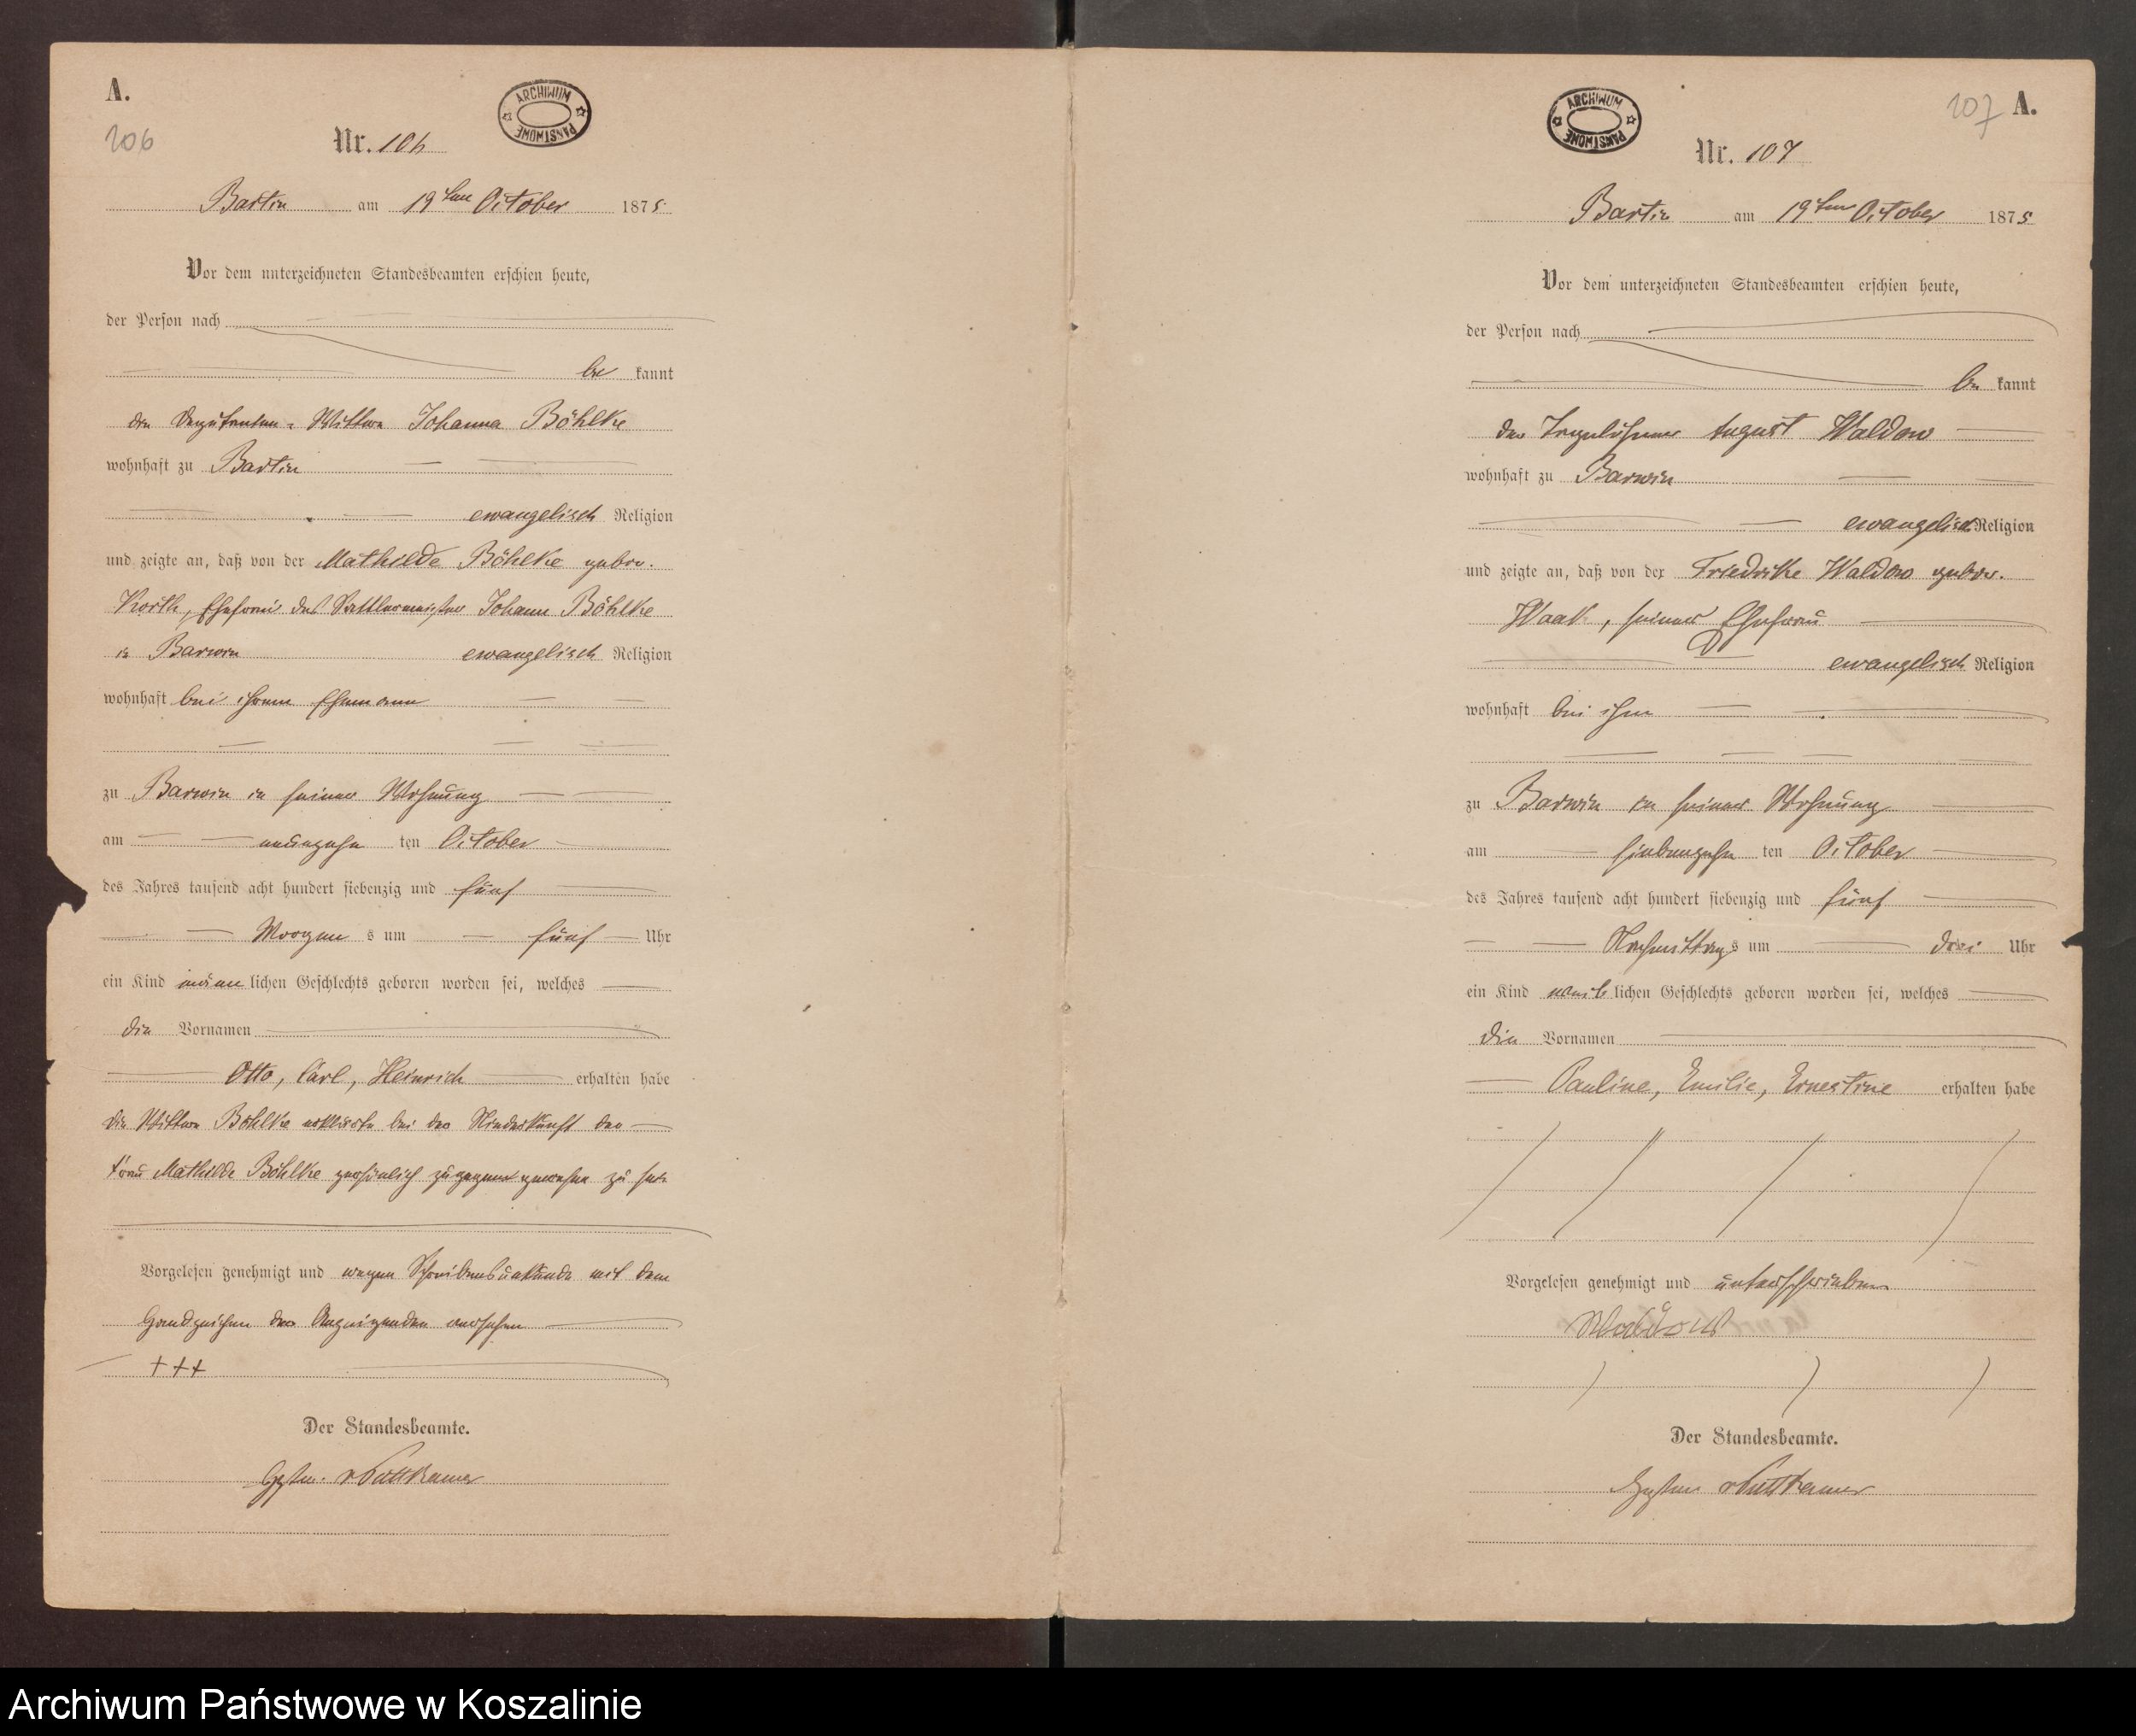 A.
106
ARCHIWUM PAŃSTWOWE
Nr. 106
Bartin am 19ten October 1875
Vor dem unterzeichneten Standesbeamten erschien heute,
der Person nach
be kannt
die Deputanten-Wittwe Johanna Böhlke
wohnhaft zu Bartin
ewangelisch Religion
und zeigte an, daß von der Mathilde Böhlke gebor.
Korth, Ehefrau des Sattlermeister Johann Böhlke
in Barwin ewangelisch Religion
wohnhaft bei ihrem Ehemann
zu Barwin in seiner Wohnung
am neunzehn ten October
des Jahres tausend acht hundert siebenzig und fünf
Morgen s um fünf Uhr
ein Kind männ lichen Geschlechts geboren worden sei, welches
die Vornamen
Otto, Carl, Heinrich erhalten habe
die Wittwe Böhlke erklärte bei der Niederkunft der
Frau Mathilde Böhlke persönlich zugegen gewesen zu sein
Vorgelesen genehmigt und wegen Schreibensunkunde mit dem
Handzeichen der Anzeigenden versehen
+++
Der Standesbeamte.
v Puttkamer
107 A.
ARCHIWUM PAŃSTWOWE
Nr. 107
Bartin am 19ten October 1875
Vor dem unterzeichneten Standesbeamten erschien heute,
der Person nach
be kannt
der Tagelöhner August Waldow
wohnhaft zu Barwin
ewangelisch Religion
und zeigte an, daß von der Friedrike Waldow gebor.
Waak, seiner Ehefrau
ewangelisch Religion
wohnhaft bei ihm
zu Barwin in seiner Wohnung
am siebenzehn ten October
des Jahres tausend acht hundert siebenzig und fünf
Nachmittag s um drei Uhr
ein Kind weib lichen Geschlechts geboren worden sei, welches
die Vornamen
Pauline, Emilie, Ernestine erhalten habe
Vorgelesen genehmigt und unterschrieben
Waldow
Der Standesbeamte.
v Puttkamer
Archiwum Państwowe w Koszalinie